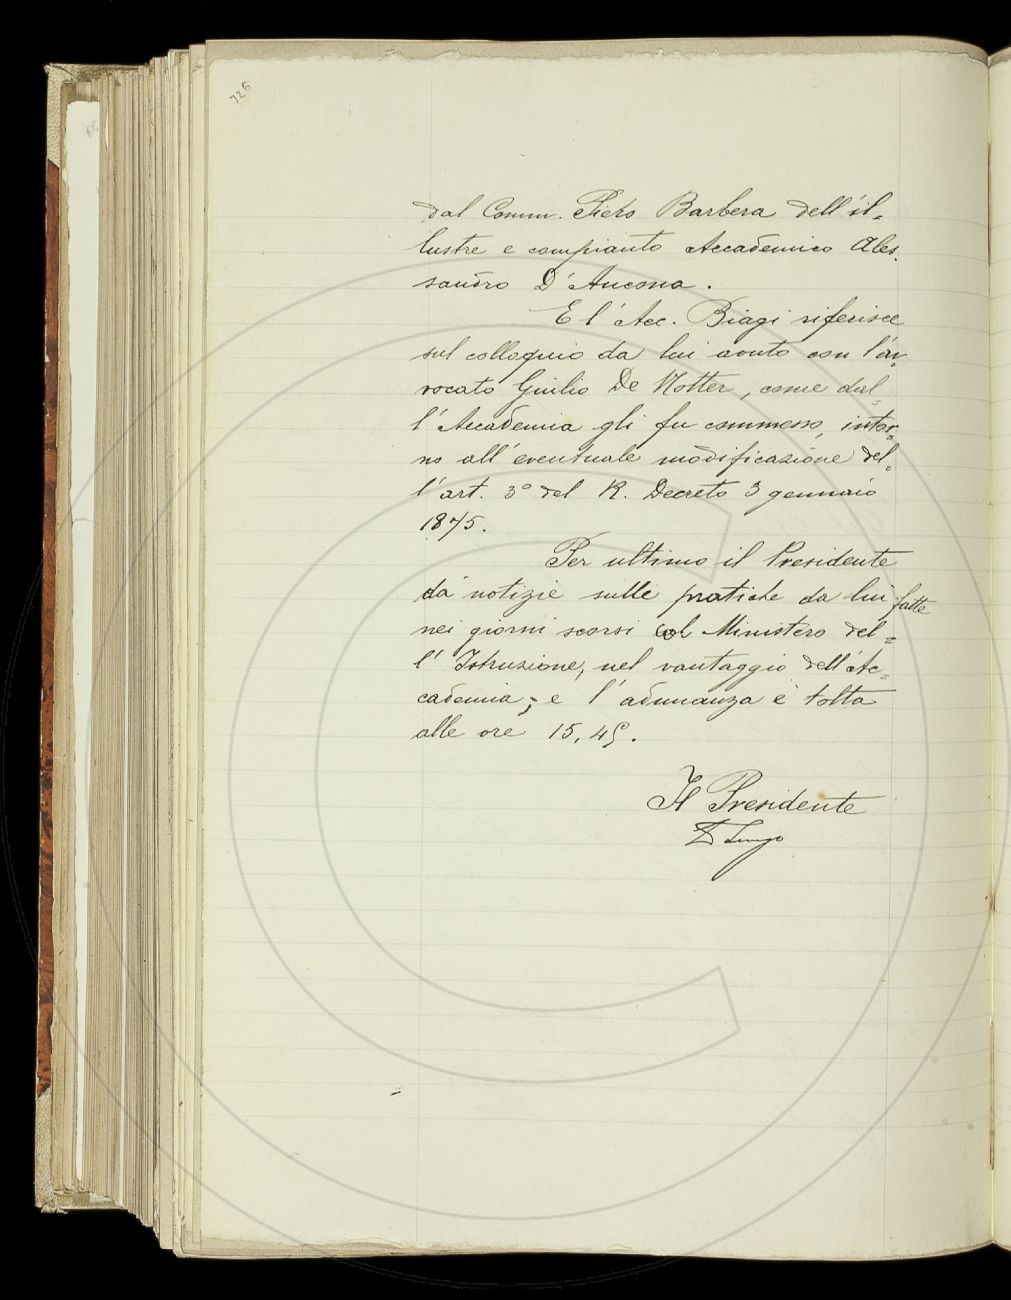 726
dal Comm. Piero Barbera dell'il=
lustre e compianto Accademico Ales=
sandro D'Ancona.
E l'Acc. Biagi riferisce
sul colloquio da lui avuto con l'av=
vocato Giulio De Notter, come dal=
l'Accademia gli fu commesso, intor=
no all'eventuale modificazione del=
l'art. 3° del R. Decreto 3 gennaio
1875.
Per ultimo il Presidente
dà notizie sulle pratiche da lui fatte
nei giorni scorsi col Ministero del=
l'Istruzione, nel vantaggio dell'Ac=
cademia; e l'adunanza è tolta
alle ore 15,45.
Il Presidente